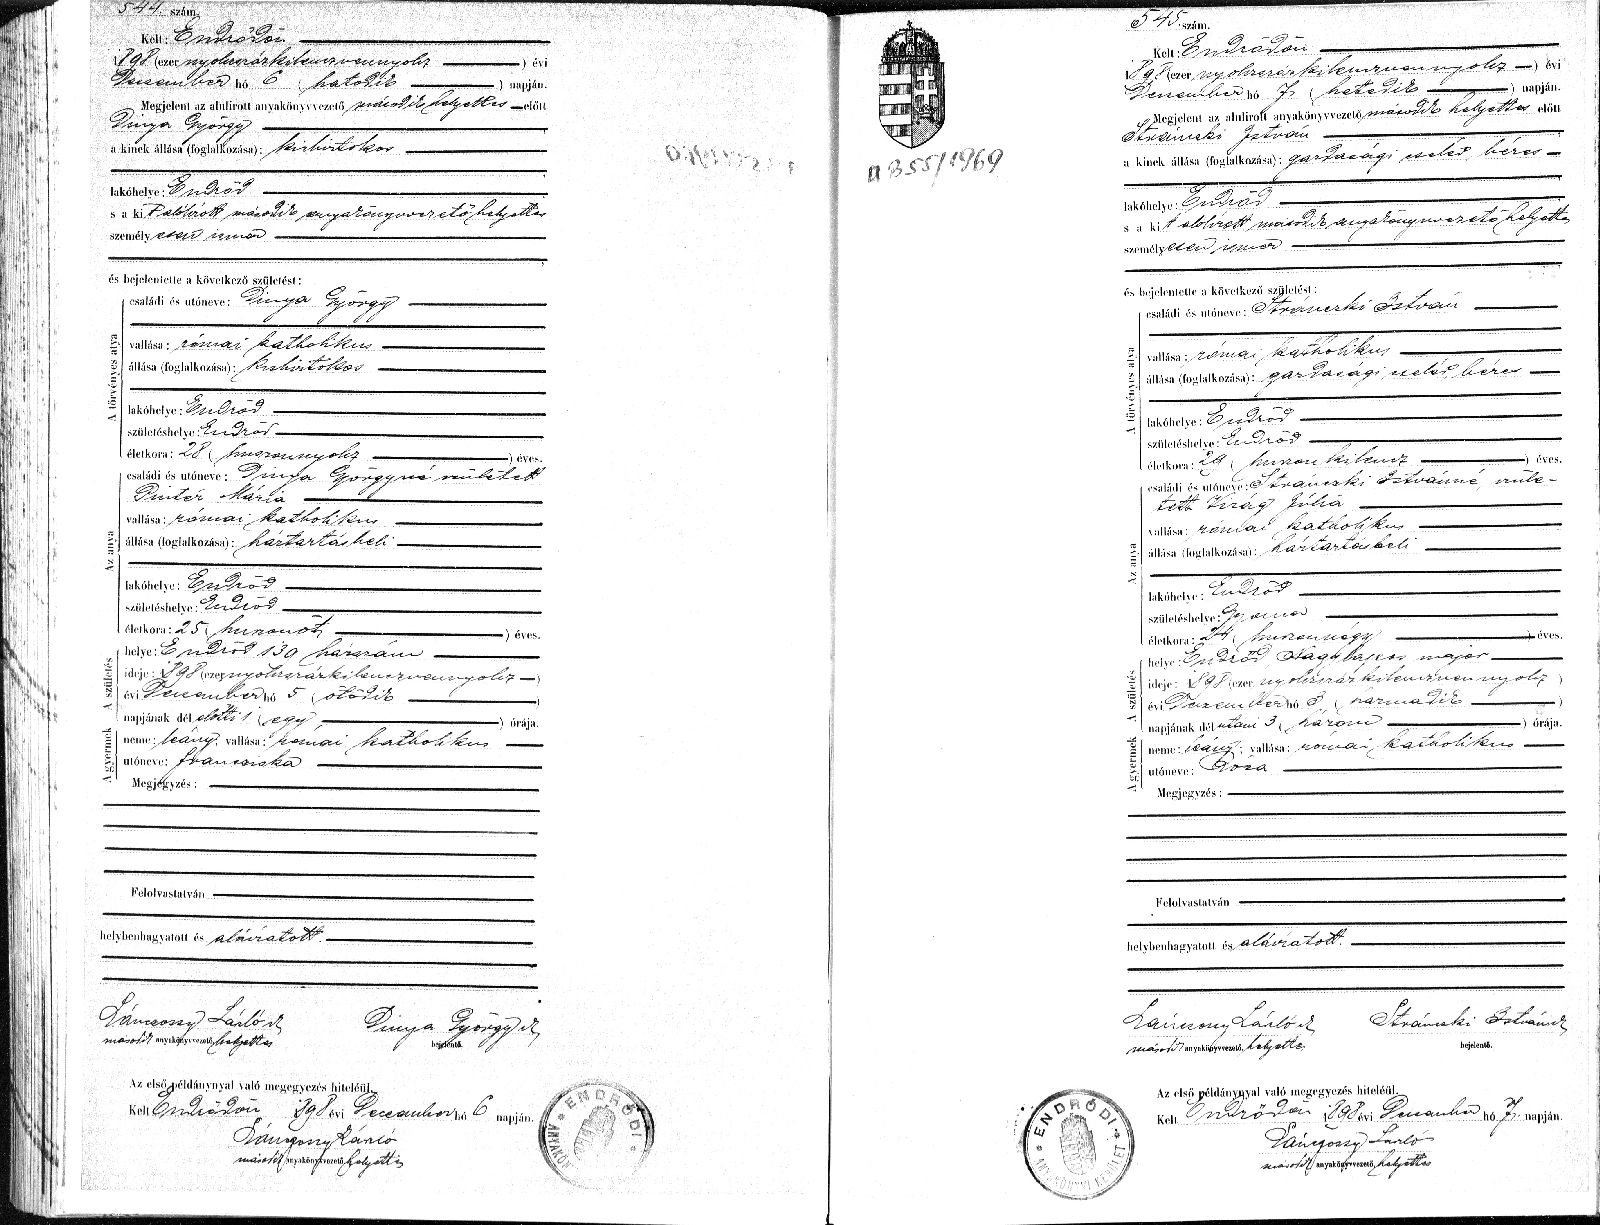 544. szám.
Kelt: Endrődön
1898 (ezer nyolczszázkilenczvennyolcz ) évi
December hó 6 ( hatodik ) napján.
Megjelent az alulirott anyakönyvvezető második helyettes előtt
Dinya György
a kinek állása (foglalkozása): kisbirtokos
lakóhelye: Endrőd
s a kit alólírott második anyakönyvvezető helyettes
személyesen ismer
és bejelentette a következő születést:
A törvényes atya
családi és utóneve: Dinya György
vallása: római katholikus
állása (foglalkozása): kisbirtokos
lakóhelye: Endrőd
születéshelye: Endrőd
életkora: 28 ( huszonnyolcz ) éves.
Az anya
családi és utóneve: Dinya Györgyné született
Pintér Mária
vallása: római katholikus
állása (foglalkozása): háztartásbeli
lakóhelye: Endrőd
születéshelye: Endrőd
életkora: 25 ( huszonöt ) éves.
A születés
helye: Endrőd 130 házszám
ideje: 1898 (ezer nyolczszázkilenczvennyolcz )
évi December hó 5 ( ötödik )
napjának dél előtti 1 ( egy ) órája.
A gyermek
neme: leány; vallása: római katholikus
utóneve: Franciska
Megjegyzés:
Felolvastatván
helybenhagyatott és aláiratott.
Lánczossy László
második anyakönyvvezető helyettes
Dinya György
bejelentő.
Az első példánynyal való megegyezés hiteléül.
Kelt Endrődön 1898 évi December hó 6 napján.
Lánczossy László
második anyakönyvvezető helyettes
ENDRŐDI
a 355/1969
545. szám.
Kelt: Endrődön
1898 (ezer nyolczszázkilenczvennyolcz ) évi
December hó 7 ( hetedik ) napján.
Megjelent az alulirott anyakönyvvezető második helyettes előtt
Stránczki István
a kinek állása (foglalkozása): gazdasági cseléd béres
lakóhelye: Endrőd
s a kit alólírott második anyakönyvvezető helyettes
személyesen ismer
és bejelentette a következő születést:
A törvényes atya
családi és utóneve: Stránczki István
vallása: római katholikus
állása (foglalkozása): gazdasági cseléd béres
lakóhelye: Endrőd
születéshelye: Endrőd
életkora: 29 ( huszonkilencz ) éves.
Az anya
családi és utóneve: Stránczki Istvánné, szüle-
tett Virág Júlia
vallása: római katholikus
állása (foglalkozása): háztartásbeli
lakóhelye: Endrőd
születéshelye: Gyoma
életkora: 24 ( huszonnégy ) éves.
A születés
helye: Endrőd Nagylapos major
ideje: 1898 (ezer nyolczszázkilenczvennyolcz )
évi December hó 3 ( harmadik )
napjának dél utáni 3 ( három ) órája.
A gyermek
neme: leány; vallása: római katholikus
utóneve: Róza
Megjegyzés:
Felolvastatván
helybenhagyatott és aláiratott.
Lánczossy László
második anyakönyvvezető helyettes
Stránczki István
bejelentő.
Az első példánynyal való megegyezés hiteléül.
Kelt Endrődön 1898 évi December hó 7 napján.
Lánczossy László
második anyakönyvvezető helyettes
ENDRŐDI